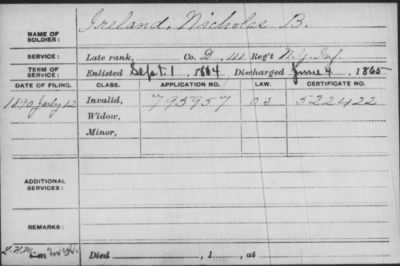 NAME OF SOLDIER: Ireland, Nicholas B.
SERVICE: Late rank, Co. D, 111 Reg't N.Y. Inf.
TERM OF SERVICE: Enlisted Sept. 1, 1864 Discharged June 4, 1865
DATE OF FILING. CLASS. APPLICATION NO. LAW. CERTIFICATE NO.
1890 July 12 Invalid, 795957 522422
Widow,
Minor,
ADDITIONAL SERVICES:
REMARKS:
Died , 1 , at